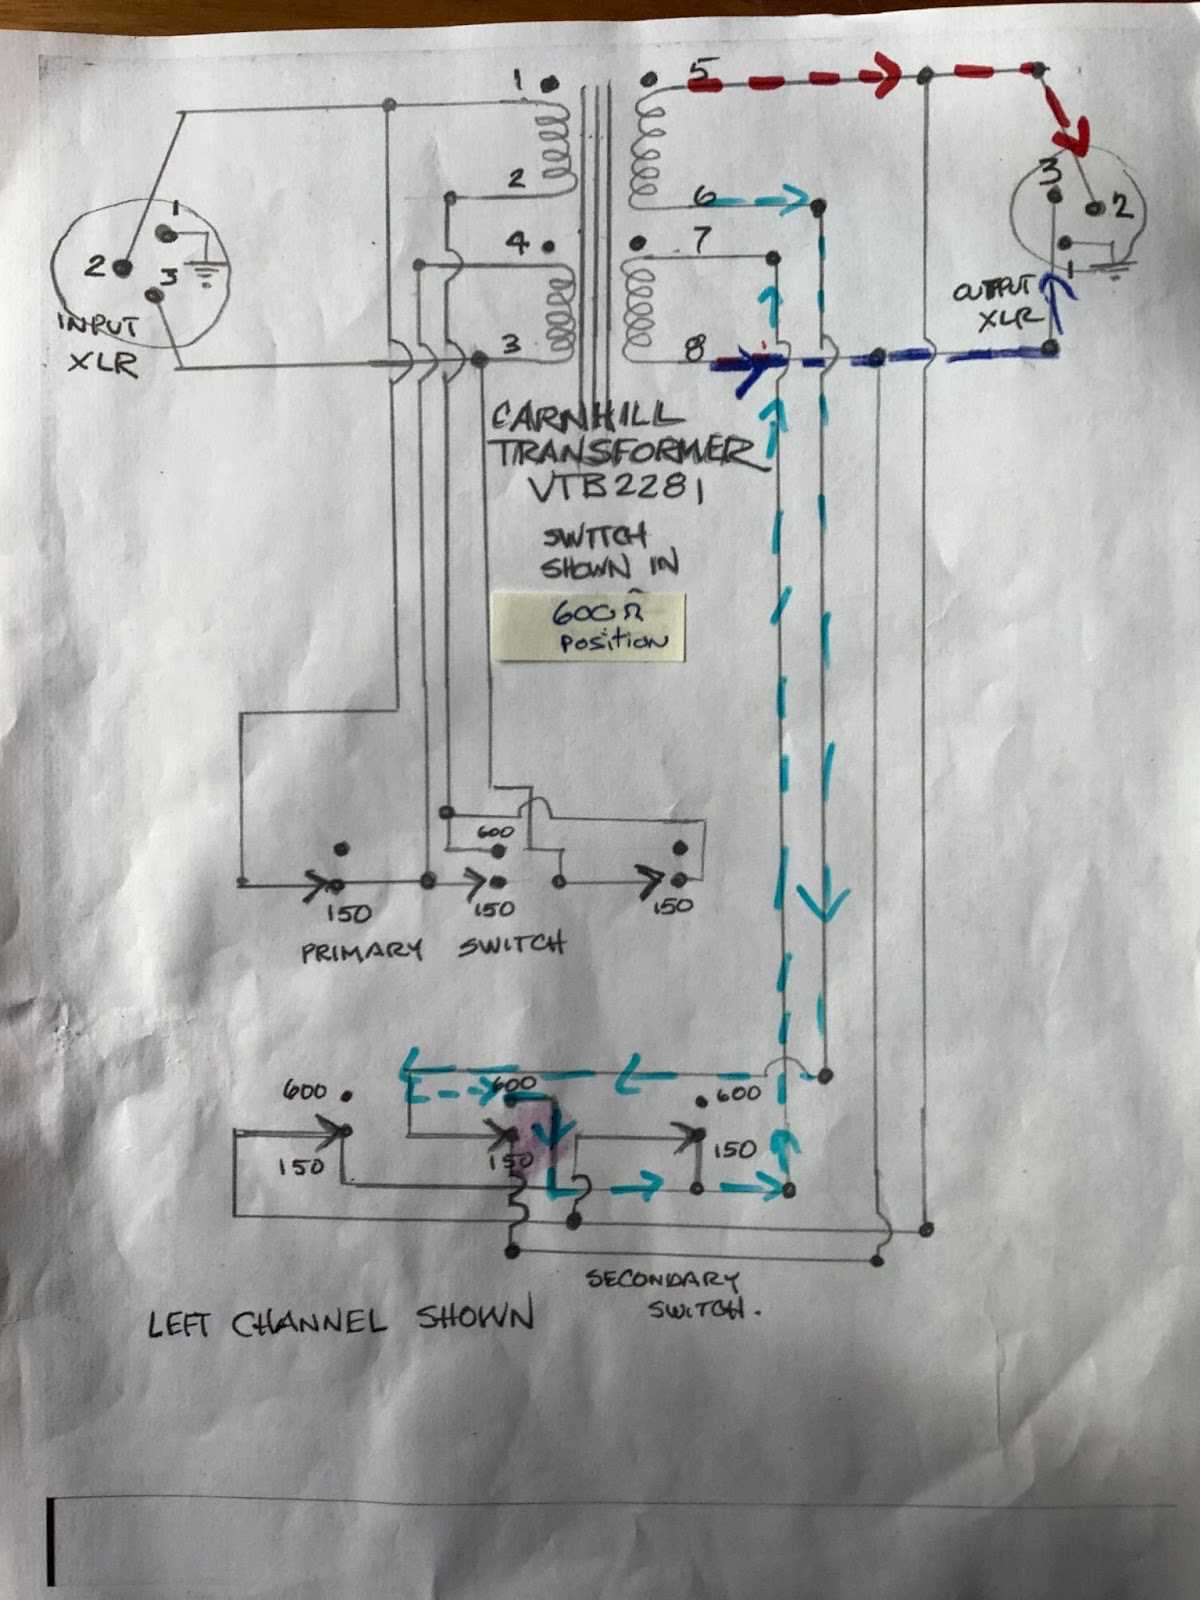 1
5
2
6
4
7
3
8
1
2
3
INPUT
XLR
3
2
1
OUTPUT
XLR
CARNHILL
TRANSFORMER
VTB2281
SWITCH
SHOWN IN
600Ω
Position
600
150
150
150
PRIMARY SWITCH
600
600
600
150
150
150
SECONDARY
SWITCH.
LEFT CHANNEL SHOWN